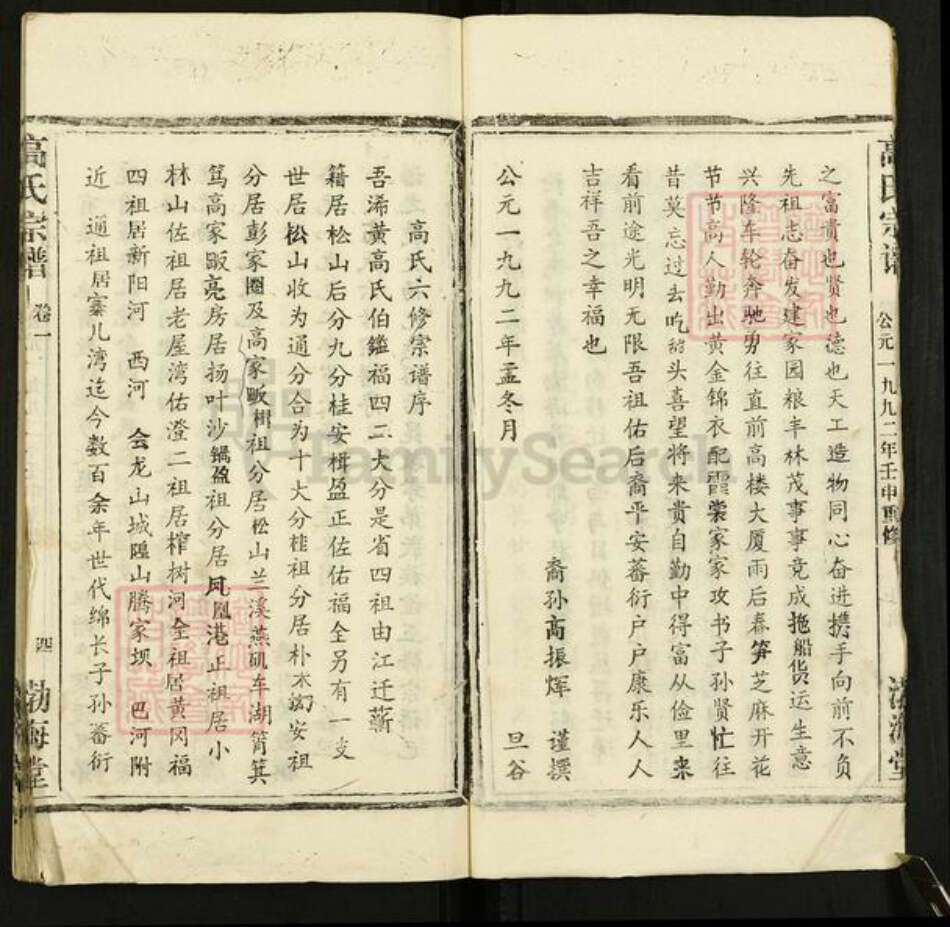 高氏宗谱
公元一九九二年壬申重修
渤海堂
之富贵也贤也德也天工造物同心奋进携手向前不负
先祖志奋发建家园粮丰林茂事事竞成拖船货运生意
兴隆车轮奔驰勇往直前高楼大厦雨后春笋芝麻开花
节节高人勤出黄金锦衣配霞裳家家攻书子孙贤忙往
昔莫忘过去吃苦头喜望将来贵自勤中得富从俭里来
看前途光明无限吾祖佑后裔平安蕃衍户户康乐人人
吉祥吾之幸福也
裔孙高振辉 谨撰
公元一九九二年孟冬月 旦谷
高氏六修宗谱序
吾浠黄高氏伯鑑福四二大分是省四祖由江迁蕲
籍居松山后分九分桂安楫盈正佐佑福全另有一支
世居松山收为通分合为十大分桂祖分居朴木㘭安祖
分居彭家圈及高家畈楫祖分居松山兰溪燕矶车湖筲箕
笃高家畈亮房居扬叶沙锅盈祖分居凤凰港正祖居小
林山佐祖居老屋湾佑澄二祖居榨树河全祖居黄冈福
四祖居新阳河 西河 会龙山城隍山腾家坝 巴河附
近 通祖居寨儿湾迄今数百余年世代绵长子孙蕃衍
高氏宗谱
卷一
四
渤海堂
FamilySearch